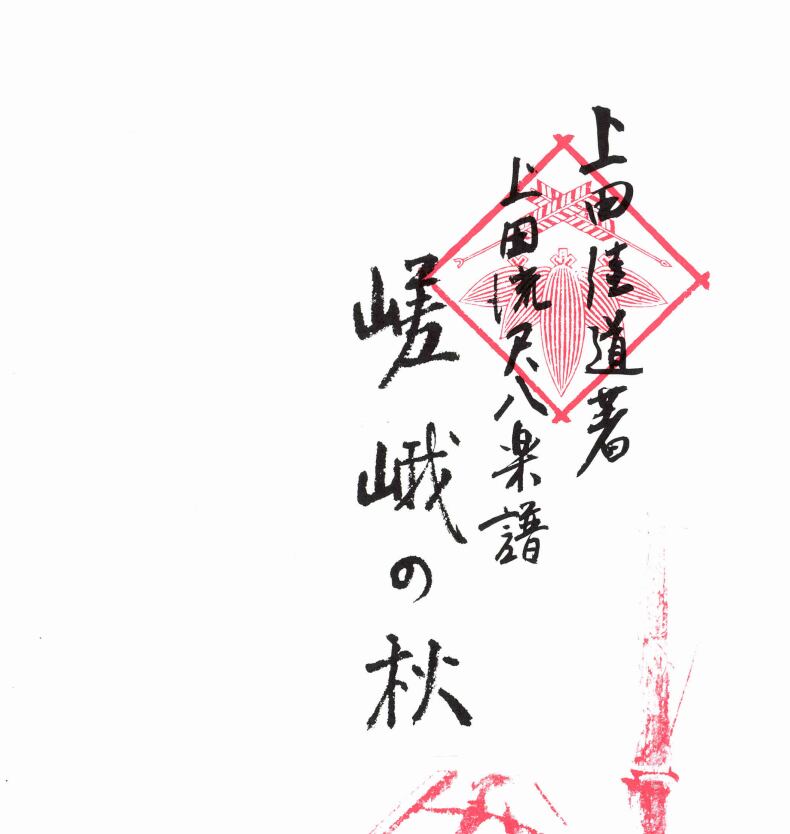 上田佳道著
上田流尺八楽譜
嵯峨の秋